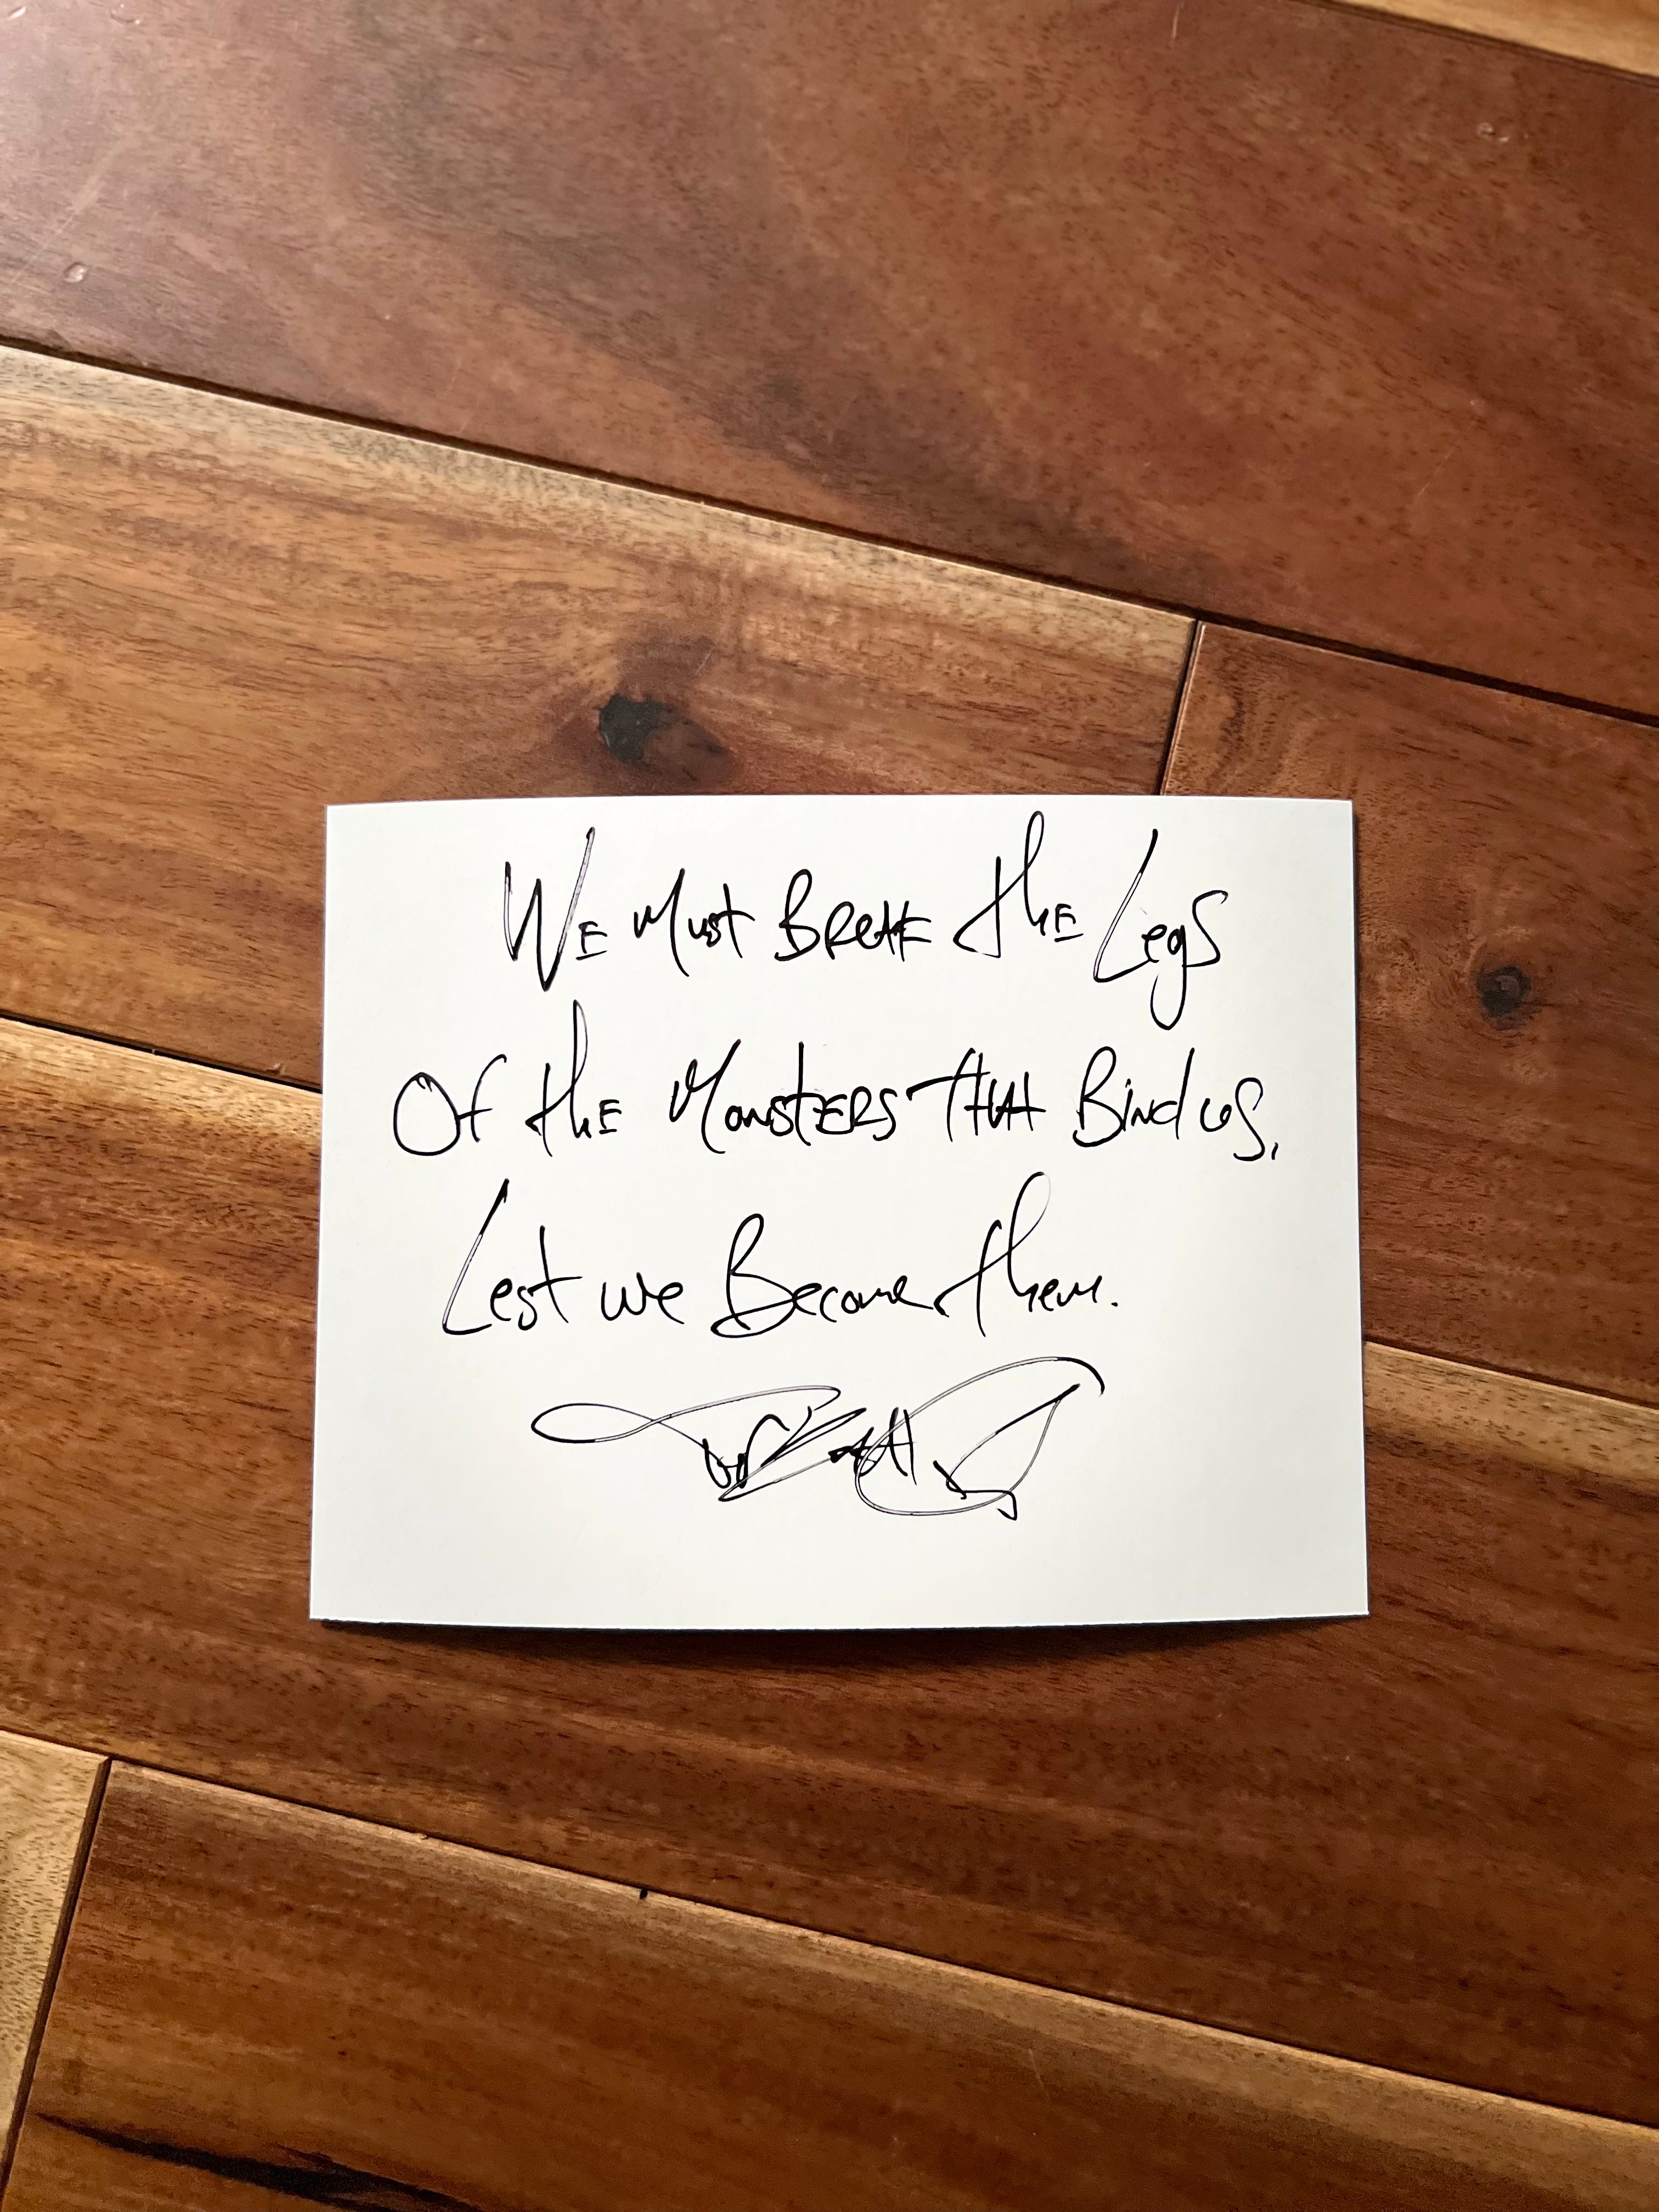 We Must Break the Legs
Of the Monsters That Bind us,
Lest we Become them.